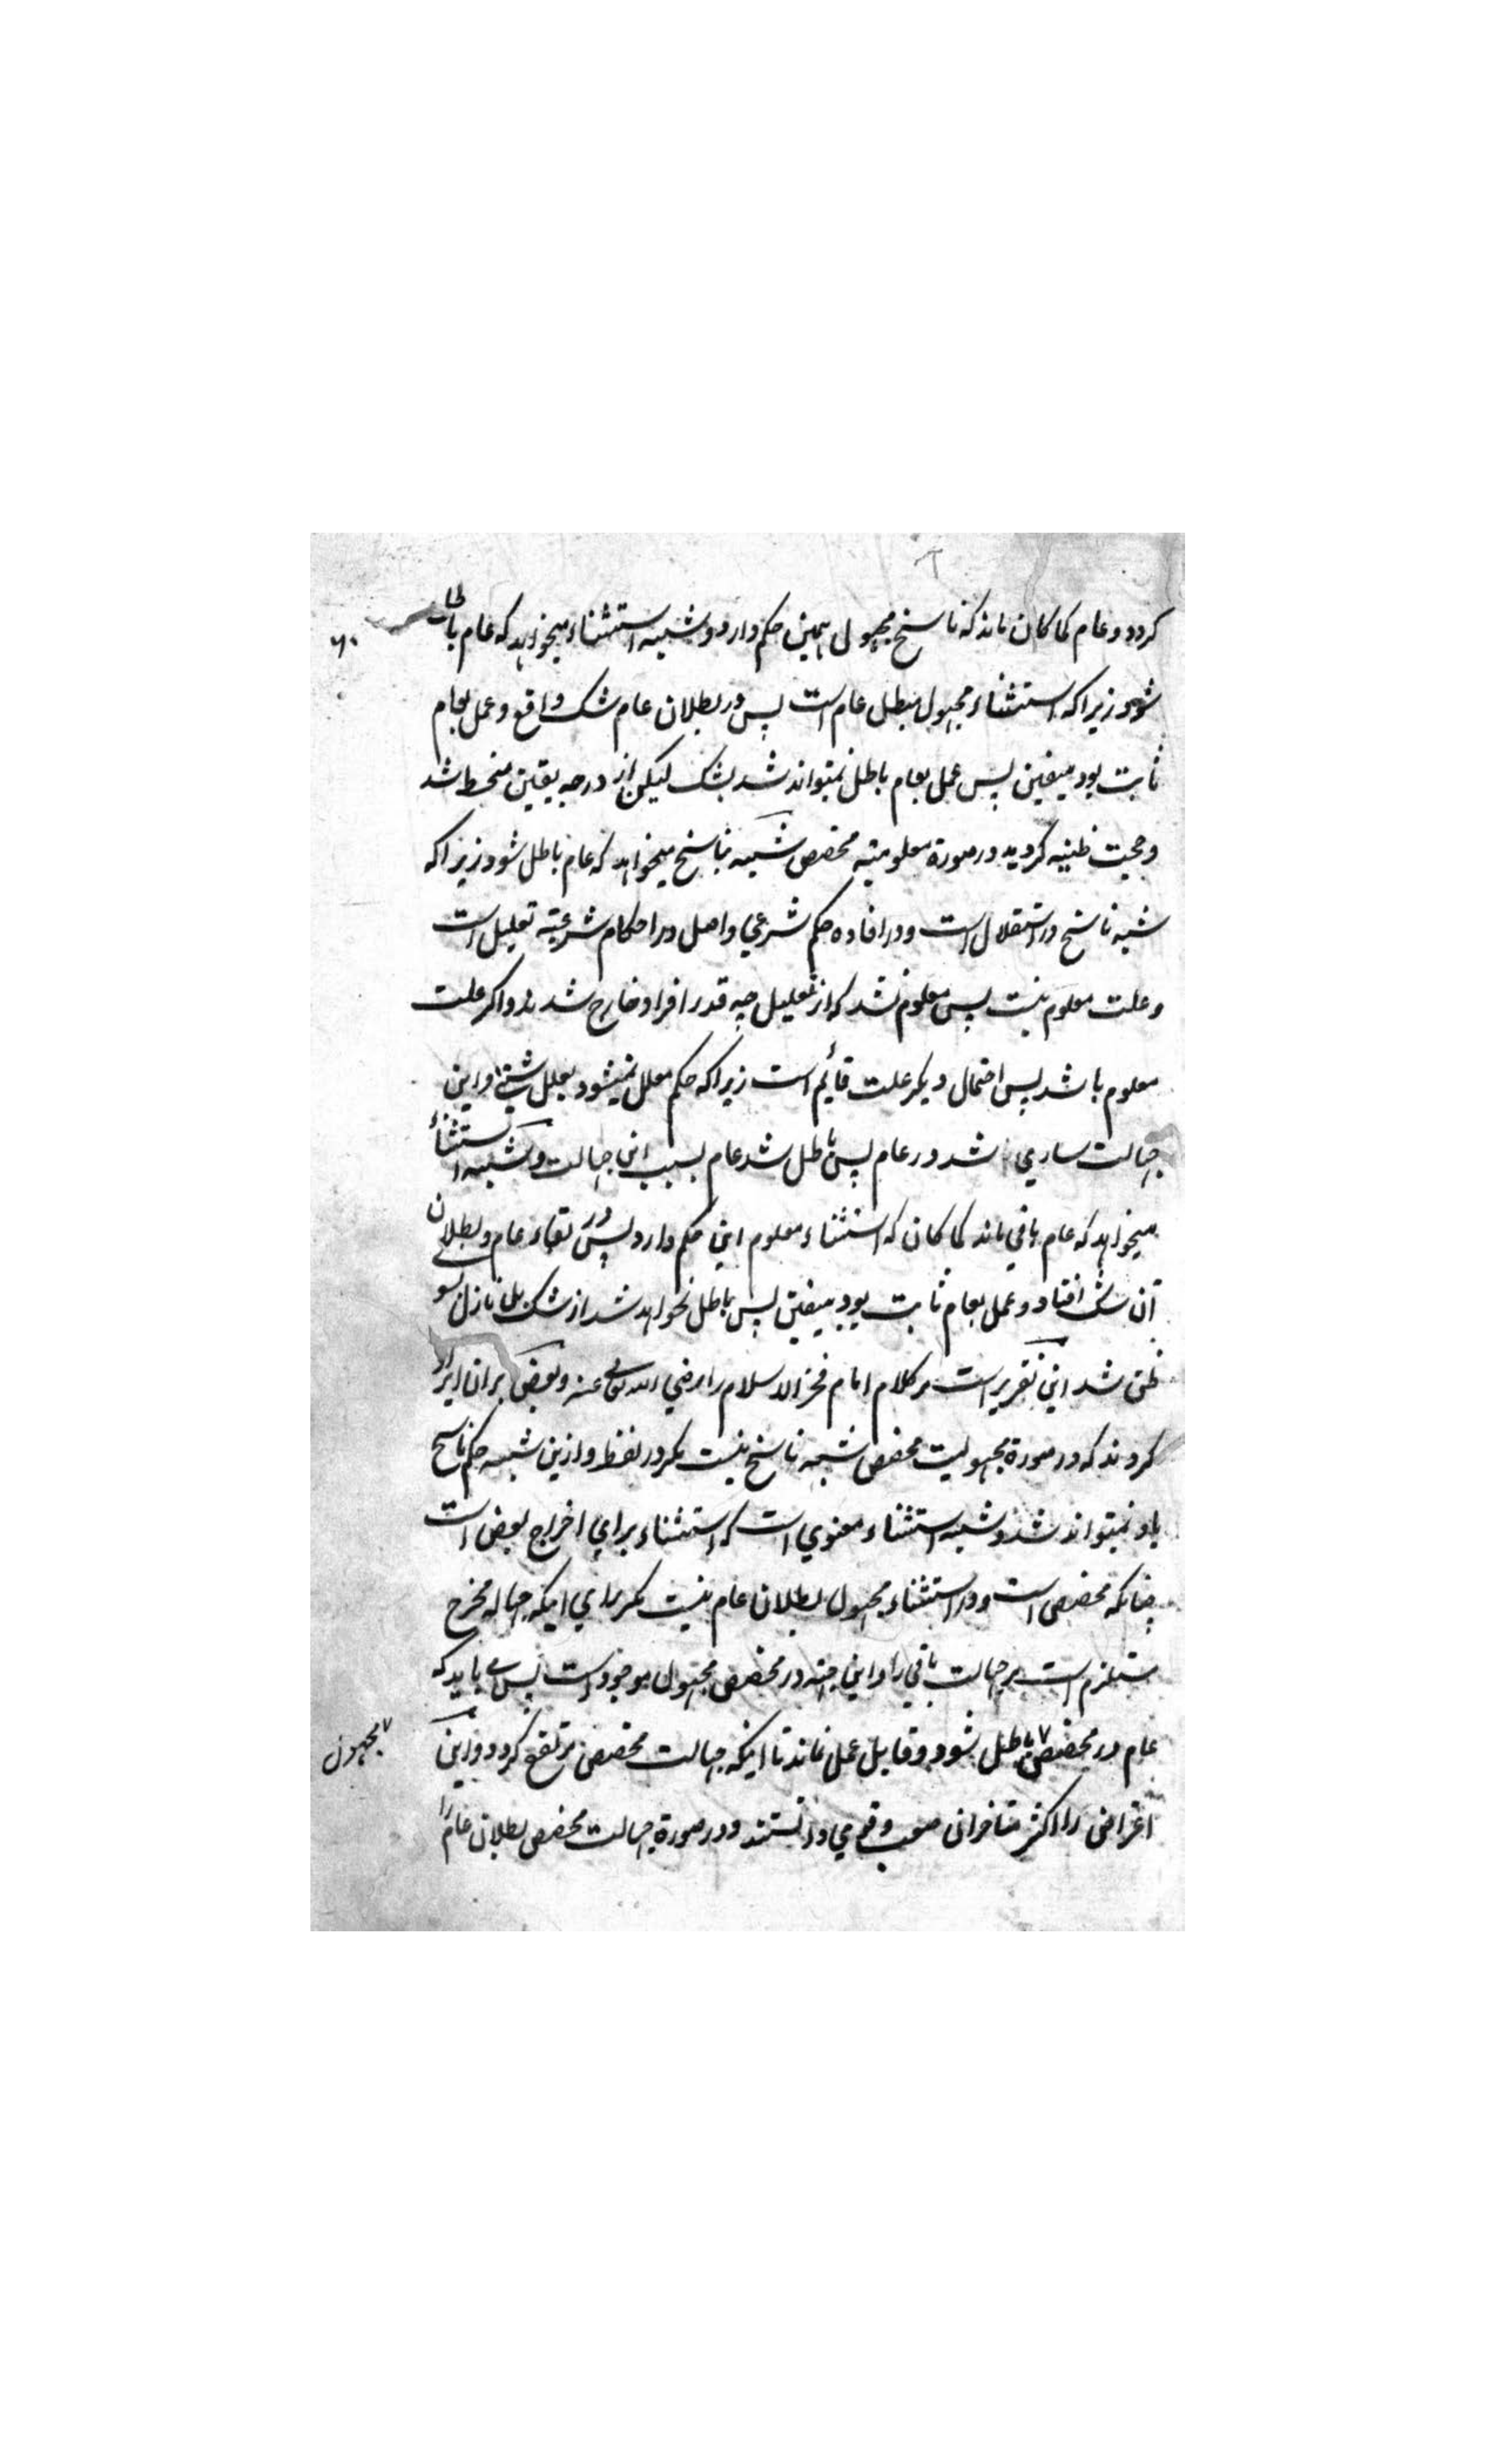 کردد و عام کما کان ماند که ناسخ مجهول همین حکم دارد و شبیه استثناء میخواهد که عام باطل
۶۰
شود زیرا که استثناء مجهول مبطل عام است پس در بطلان عام شک واقع و عمل بعام
ثابت بود بیقین پس عمل بعام باطل نمیتواند شد بشک لیکن از درجه یقین منحط شد
و حجیت ظنیه کردید در صورة معلومیته مخصص شبیه بناسخ میخواهد که عام باطل شود زیرا که
شبه ناسخ در استقلال است و در افاده حکم شرعي و اصل در احکام شرعیته تعلیل است
و علت معلوم نیست پس معلوم نشد که از تعلیل چه قدر افراد خارج شدند و اکر علت
معلوم باشد پس احتمال دیکر علت قائیم است زیرا که حکم معلل نمیشود بعلل شتی و این
جهالت ساري شد در عام پس باطل شد عام بسبب این جهالت و شبیه استثناء
میخواهد که عام باقي ماند کما کان که استثناء معلوم این حکم دارد پس در بقاء عام و بطلان
آن شک افتاد و عمل بعام ثابت بود بیقین پس باطل نخواهد شد از شک بل نازل بسوے
ظنی شد این تقریر است مر کلام امام فخر الاسلام را رضي الله تعالی عنه و بعض بران ایراد
کردند که در صورة مجهولیت مخصص شبیه ناسخ نیست مکر در لفظ و ازین شبیه حکم ناسخ
باو نمیتواند شد و شبیه استثناء معنوي است که استثناء براي اخراج بعض است
چنانکه مخصص است و در استثناء مجهول بطلان عام نیست مکر براي اینکه جهاله مخرج
مستلزم است مر جهالت باقي را و این جهته در مخصص مجهول موجود است پس مے باید که
عام در مخصص ٧ باطل شود و قابل عمل نماند تا اینکه جهالت مخصص مرتفع کردد و این
٧ مجهول
اعتراض را اکثر متاخران صعب و قوي دانستند و در صورة جهالت مخصص بطلان عام را